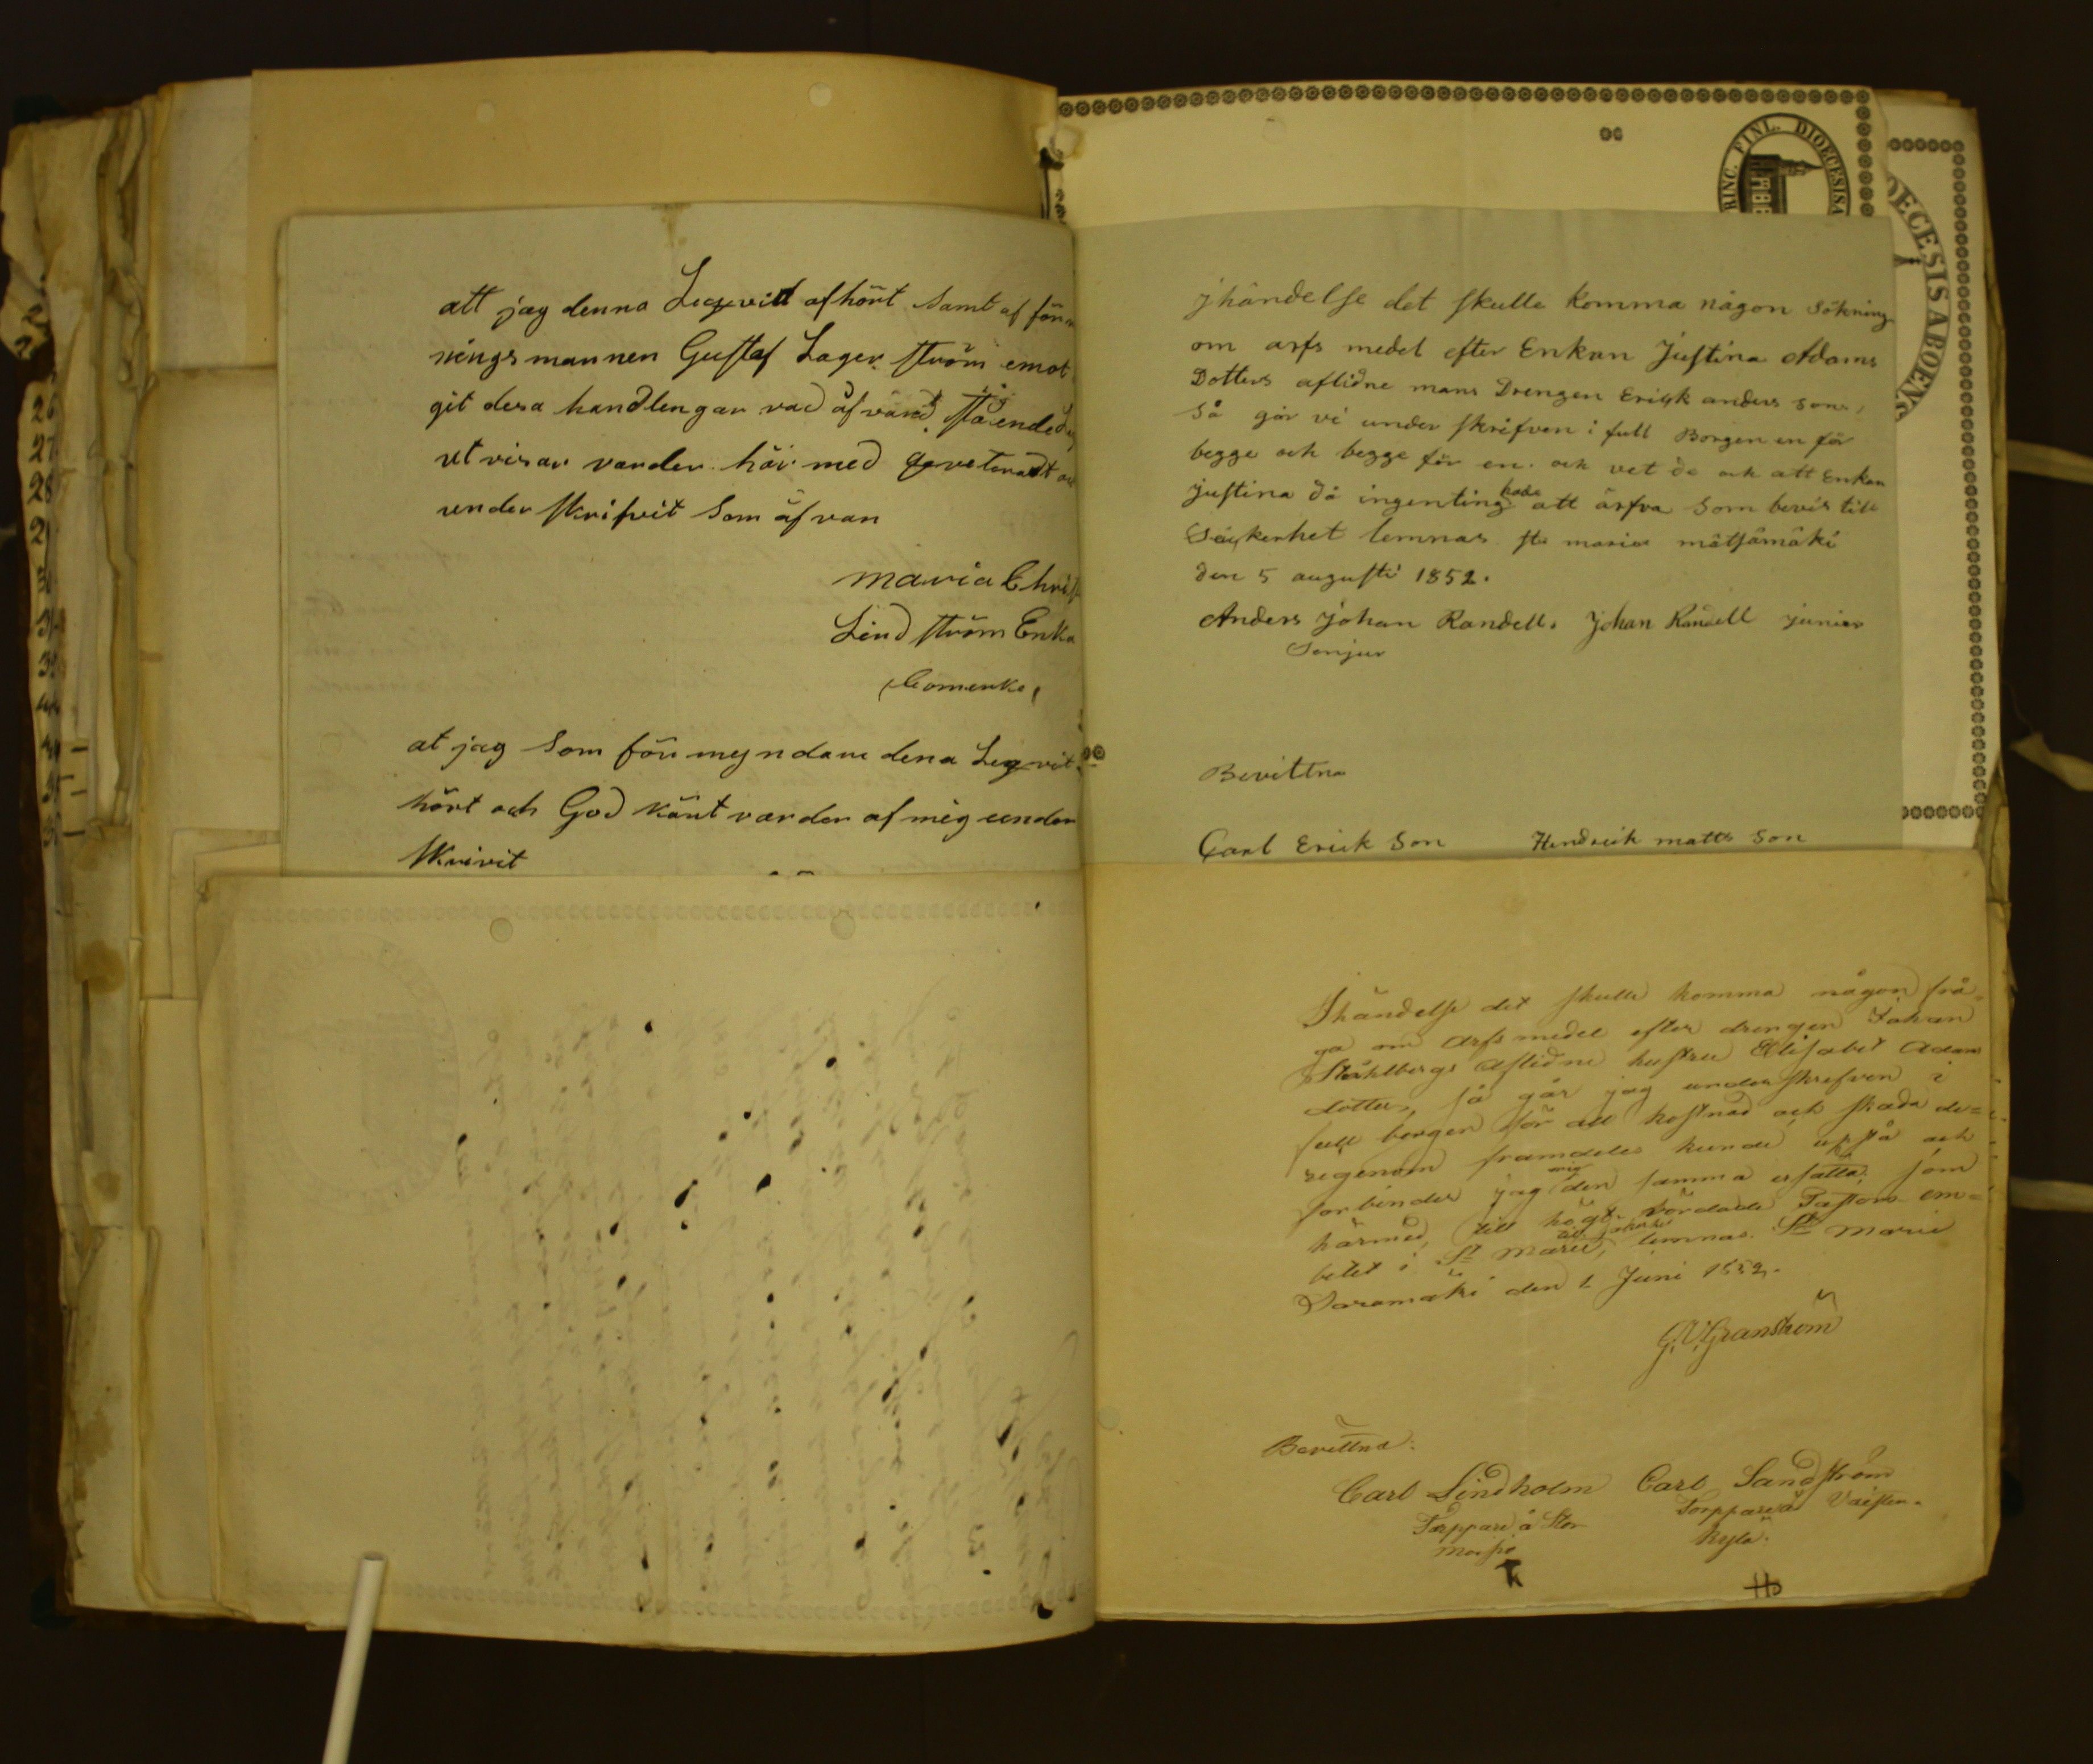 att jag denna Leqevid afhört samt af för
ningsmannen Gustaf Lagerström emot
git desa handlengar vad åfvand stående
utvisar varder här med qveteradt
under skrifvit som åfvan
Maria Chris
Lindström Enka
Comenke
at jag som förmyndare dena Leqvit
hört och God känt varder af mig under
skrivit
PRINC. FINL. DIOECESISA
OECESIS ABOENS
Jhändelse det skulle komma någon sökning
om arfs medel efter Enkan Justina Adams
Dotters aflidne mans Drengen Erick anders sons,
så går vi under skrifven i full Borgen en för
begge och begge för en. och vet de och att Enkan
justina då ingenting hade att ärfva som bevis till
Säkerhet lemnas st maria mätsämäki
den 5 augusti 1852.
Anders Johan Randell. Johan Randell junior
Senjur
Bevittna
Carl Erick Son Hendrick matts Son
Jhändelse det skulle komma någon frå-
ga om Arfs medel efter drengen Johan
Ståhlbergs Aflidne hustru Elisabet Adams
dotter, så går jag underskrefven i
full borgen för all kostnad och skada de=
rigenom framdeles kunde uppstå och
forbinder jag mig den samma ersätta; som
härmed, till högt vördade Pastors em=
betet i St Marie, lemnas. St Marie
Saramäki den 1 Juni 1852.
G. V. Granström
Bevittna:
Carl Lindholm Carl Sandström
Torppare å Stor Torppare å Vaisten-
kyla.
26
27
28